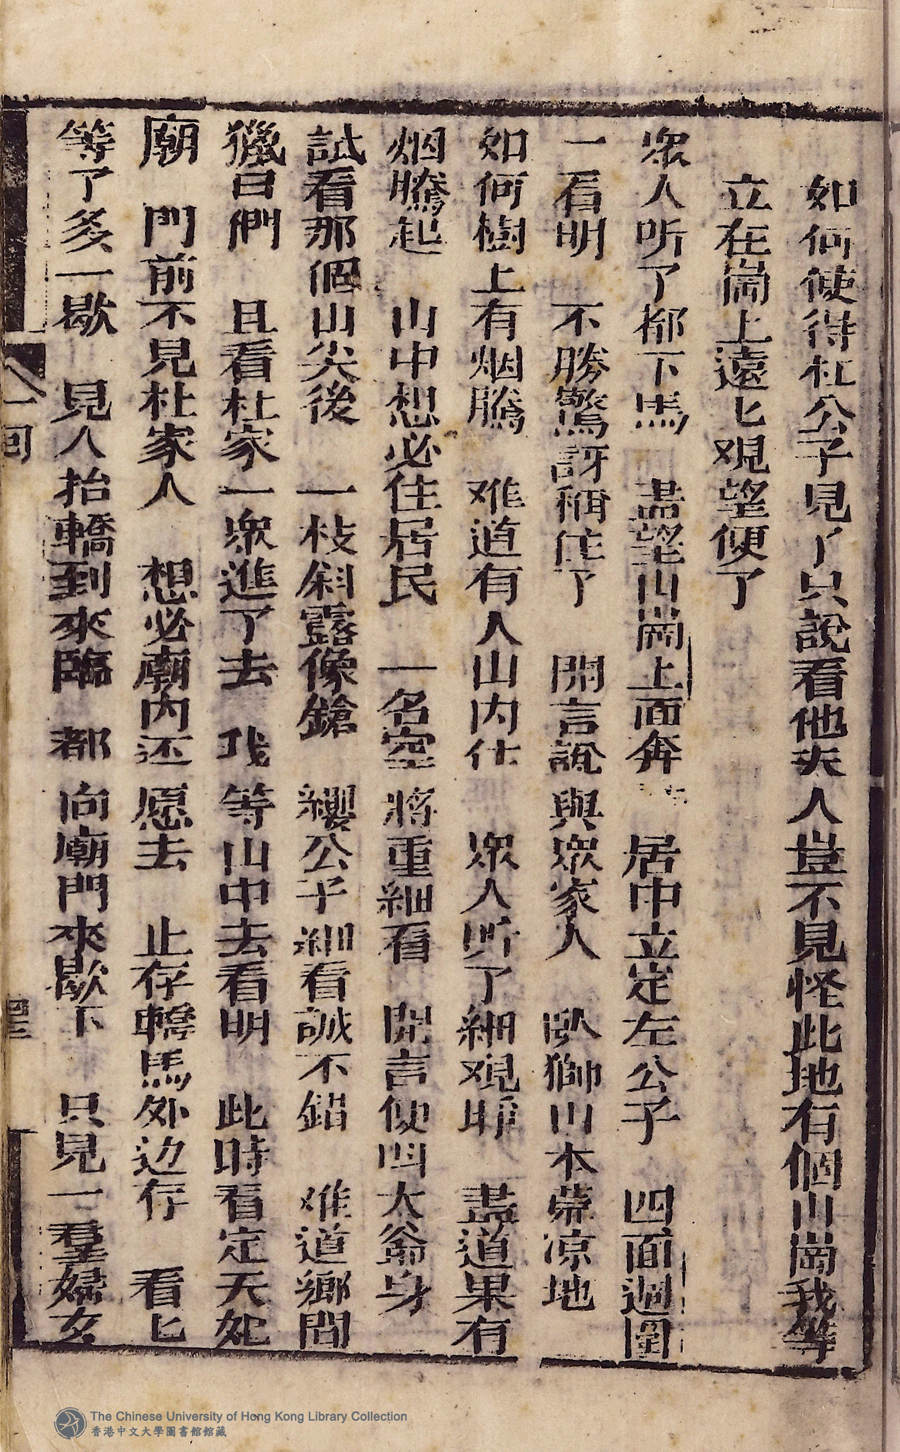 如何使得杜公子見了只說看他夫人豈不見怪此地有個山崗我等
立在崗上遠匕观望便了
眾人听了都下馬 盡望山崗上面奔 居中立定左公子 四面迴圍
一看明 不勝驚訝稱住了 開言說與眾家人 卧獅山本荒凉地
如何樹上有烟騰 难道有人山内住 眾人听了細观睁 盡道果有
烟騰起 山中想必住居民 一名空將重細看 開言便叫太爺身
試看那個山尖後 一枝斜露像鎗纓 公子細看誠不錯 难道鄉間
獵白們 且看杜家一眾進了去 我等山中去看明 此時看定天妃
廟 門前不見杜家人 想必廟内还愿去 止存轎馬外边存 看匕
等了多一歇 見人抬轎到來臨 都向廟門來歇下 只見一羣婦女
八一回
The Chinese University of Hong Kong Library Collection
香港中文大學圖書館館藏